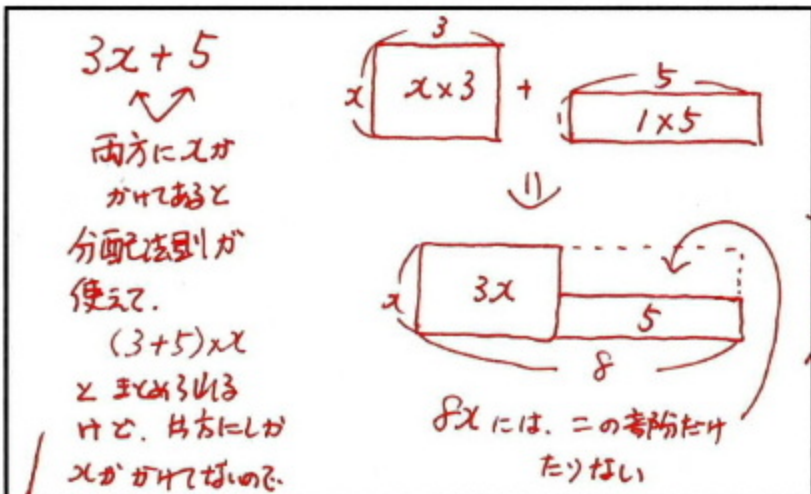 3x + 5
両方にxが
かけてあると
分配法則が
使えて.
(3+5)×x
とまとめられる
けど、片方にしか
xがかけてないので
3
x
x×3
+
5
1×5
=
x
3x
5
8
8xには、この部分だけ
たりない